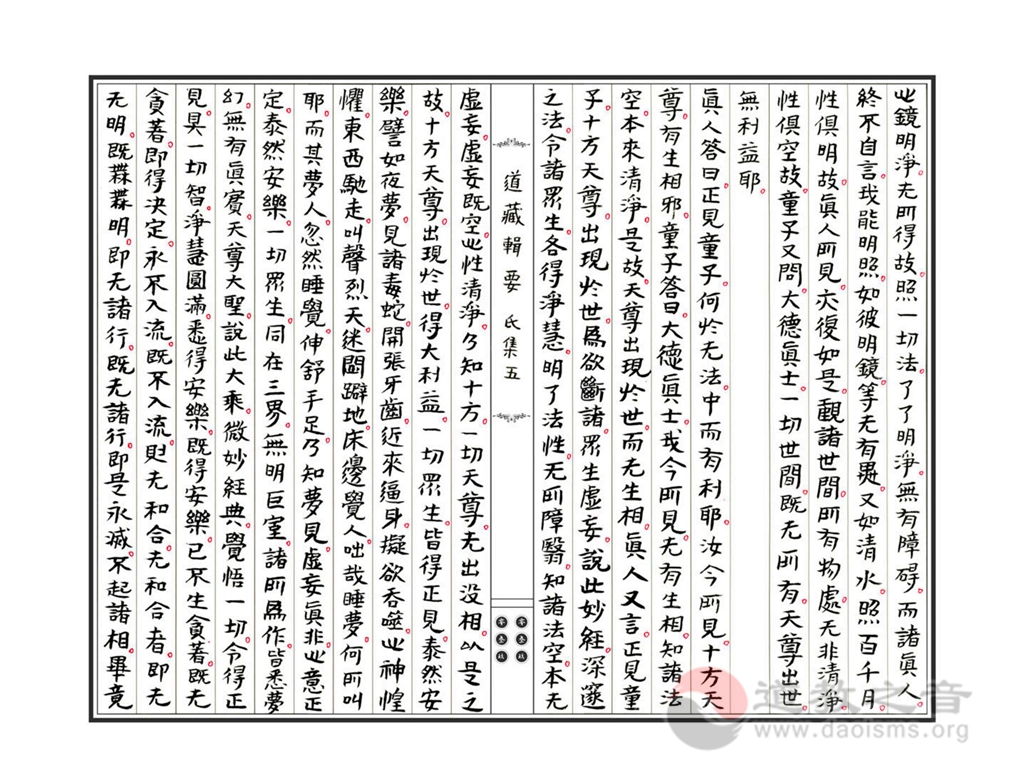 心鏡明淨无所得故照一切法了了明淨無有障碍而諸眞人
終不自言我能明照如彼明鏡等无有異又如清水照百千月
性俱明故眞人所見亦復如是觀諸世間所有物處无非清淨
性俱空故童子又問大德眞士一切世間既无所有天尊出世
無利益耶
眞人答曰正見童子何於无法中而有利耶汝今所見十方天
尊有生相邪童子答曰大德眞士我今所見无有生相知諸法
空本來清淨是故天尊出現於世而无生相眞人又言正見童
子十方天尊出現於世爲欲斷諸眾生虛妄說此妙經深邃
之法令諸眾生各得淨慧明了法性无所障翳知諸法空本无
道藏輯要 氐集五
虛妄虛妄既空心性清淨乃知十方一切天尊无出没相以是之
故十方天尊出現於世得大利益一切眾生皆得正見泰然安
樂譬如夜夢見諸毒蛇開張牙齒近來逼身擬欲吞噬心神惶
懼東西馳走叫聲烈天迷悶躃地床邊覺人咄哉睡夢何所叫
耶而其夢人忽然睡覺伸舒手足乃知夢見虛妄眞非心意正
定泰然安樂一切眾生同在三界無明巨室諸所爲作皆悉夢
幻無有眞實天尊大聖說此大乘微妙經典覺悟一切令得正
見具一切智淨慧圓滿悉得安樂既得安樂已不生貪著既无
貪著即得決定永不入流既不入流則无和合无和合者即无
无明既無無明即无諸行既无諸行即是永滅不起諸相畢竟
道教之音
www.daoisms.org